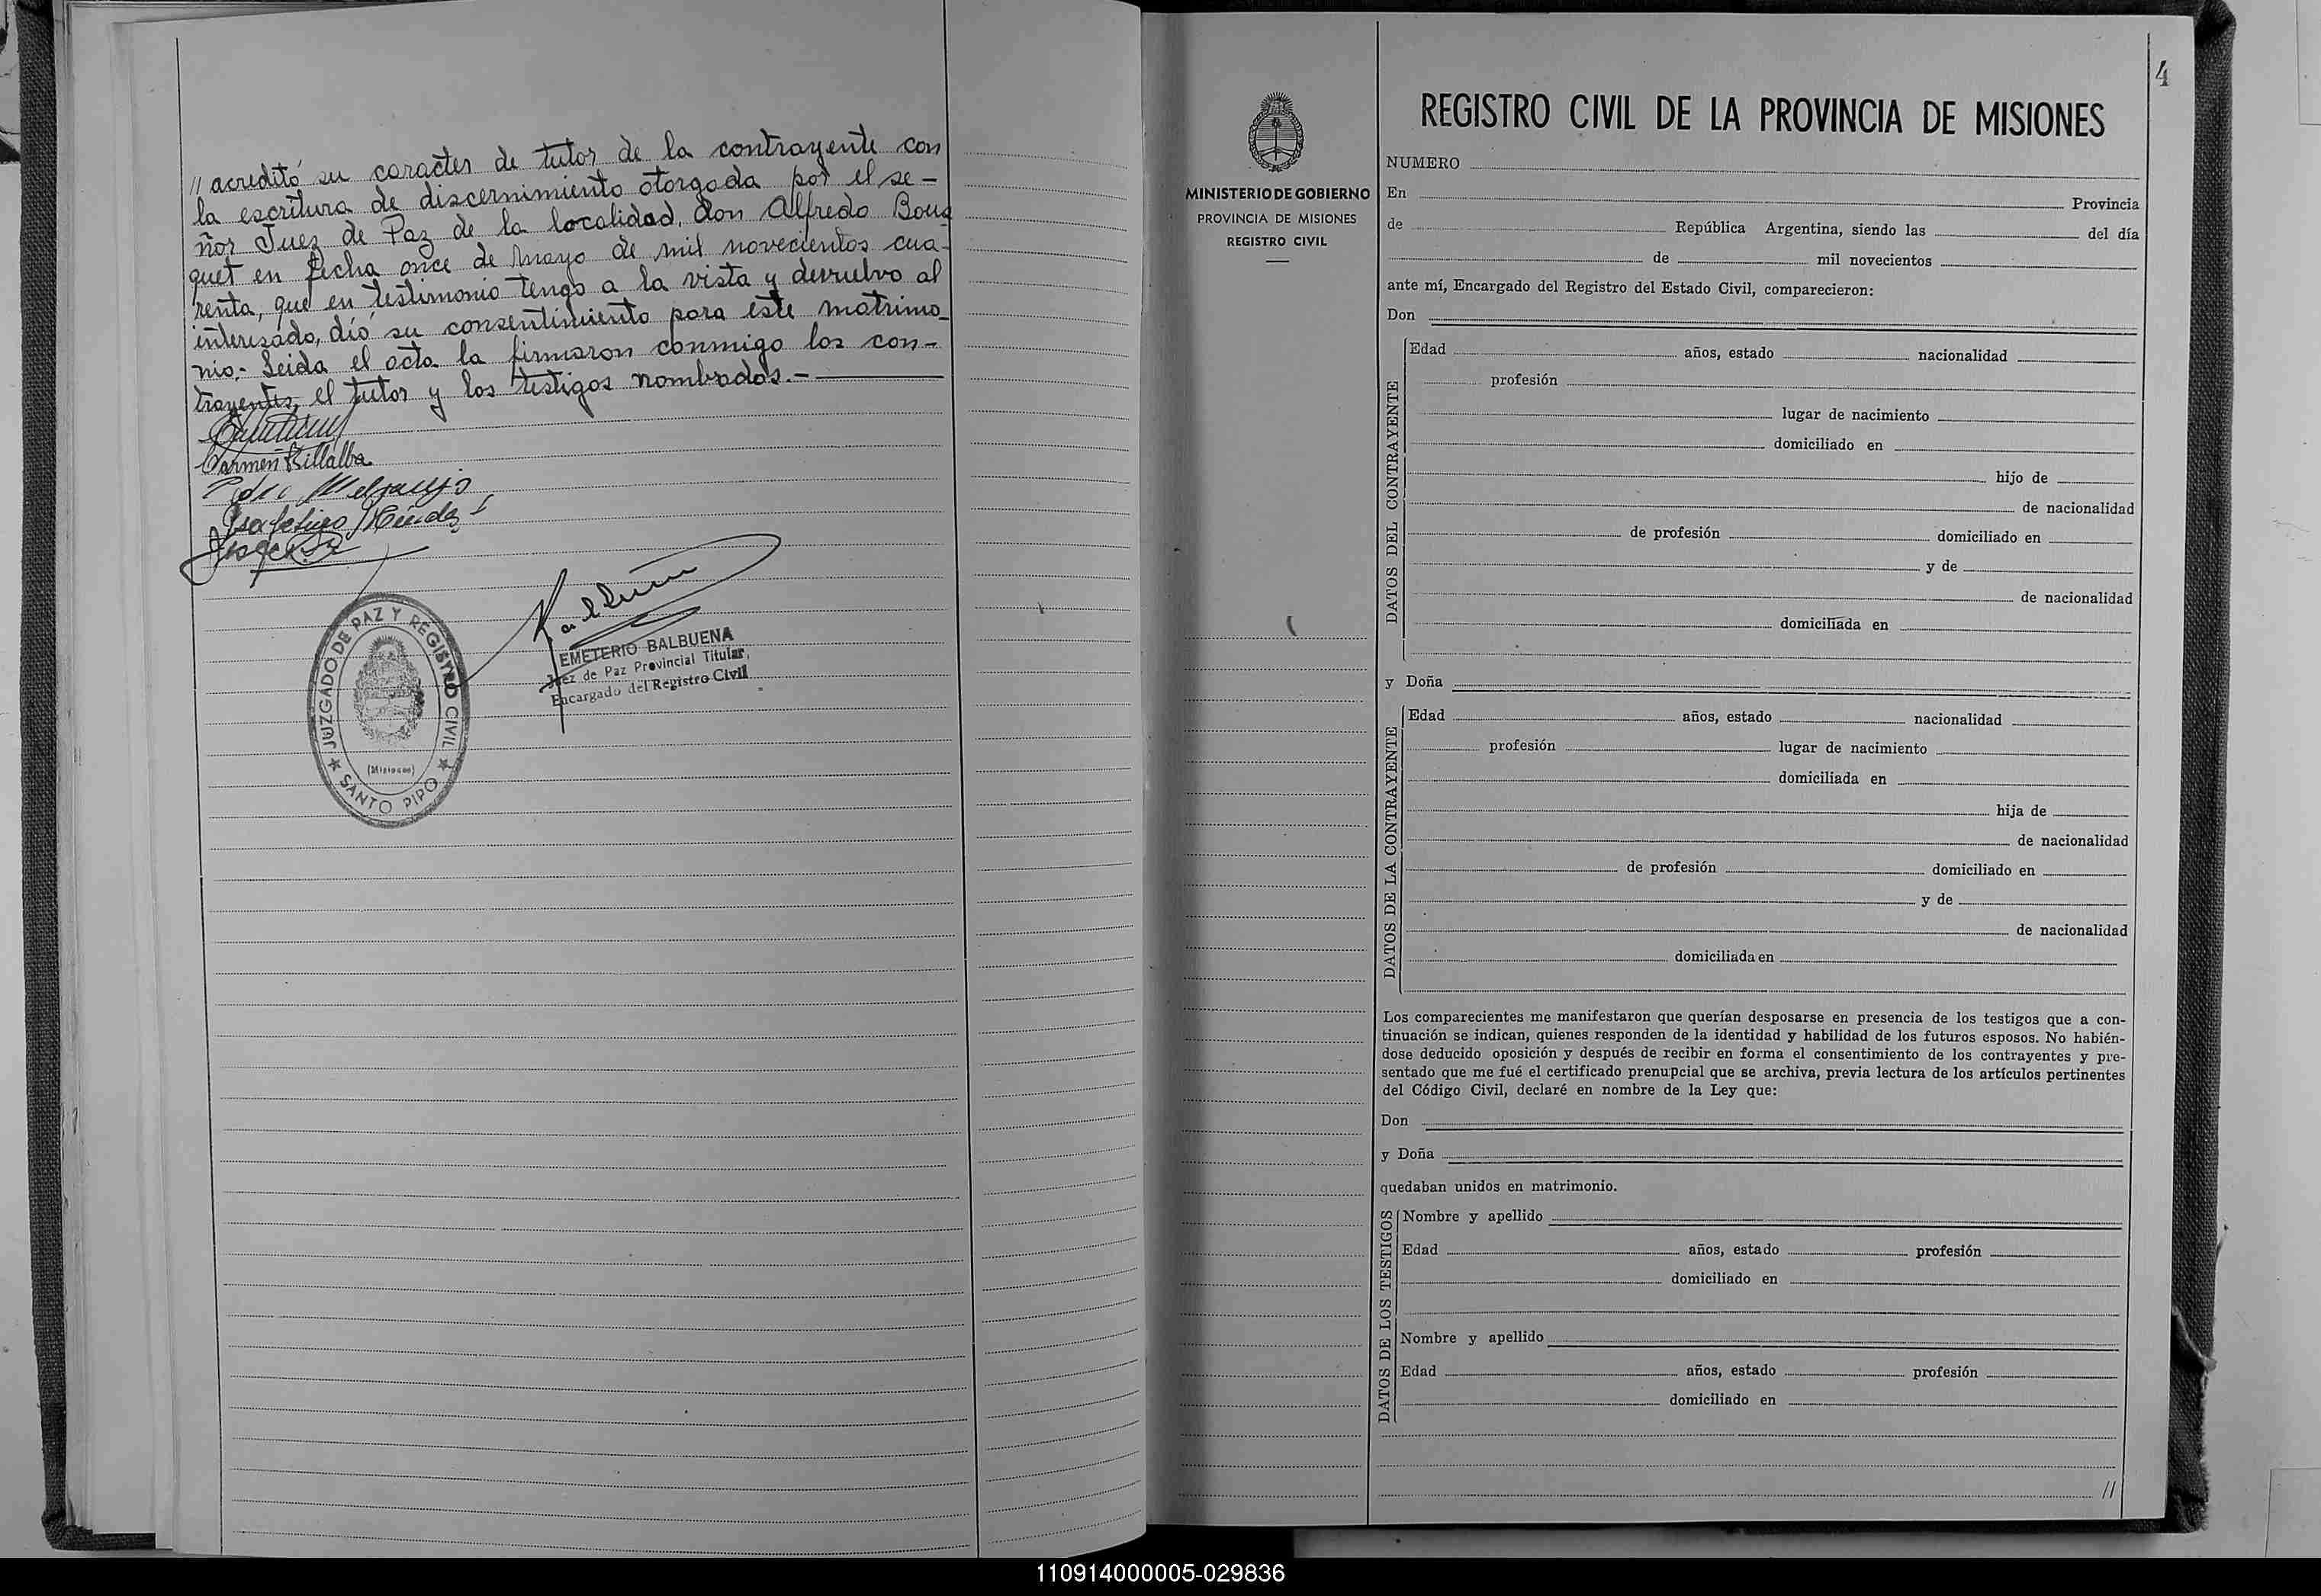 // acreditó su caracter de tutor de la contrayente con
la escritura de discernimiento otorgada por el se-
ñor Juez de Paz de la localidad, don Alfredo Bou
quet en fecha once de mayo de mil novecientos cua-
renta, que en testimonio tengo a la vista y devuelvo al
interesado, dió su consentimiento para este matrimo-
nio.- Leida el acta la firmaron conmigo los con-
trayentes, el tutor y los testigos nombrados.-
Carmen Villalba
JUZGADO DE PAZ Y REGISTRO CIVIL
(Misiones)
SANTO PIPO
EMETERIO BALBUENA
Juez de Paz Provincial Titular
Encargado del Registro Civil
4
MINISTERIO DE GOBIERNO
PROVINCIA DE MISIONES
REGISTRO CIVIL
REGISTRO CIVIL DE LA PROVINCIA DE MISIONES
NUMERO
En Provincia
de República Argentina, siendo las del día
de mil novecientos
ante mí, Encargado del Registro del Estado Civil, comparecieron:
Don
DATOS DEL CONTRAYENTE
Edad años, estado nacionalidad
profesión
lugar de nacimiento
domiciliado en
hijo de
de nacionalidad
de profesión domiciliado en
y de
de nacionalidad
domiciliada en
y Doña
DATOS DE LA CONTRAYENTE
Edad años, estado nacionalidad
profesión lugar de nacimiento
domiciliada en
hija de
de nacionalidad
de profesión domiciliado en
y de
de nacionalidad
domiciliada en
Los comparecientes me manifestaron que querían desposarse en presencia de los testigos que a con-
tinuación se indican, quienes responden de la identidad y habilidad de los futuros esposos. No habién-
dose deducido oposición y después de recibir en forma el consentimiento de los contrayentes y pre-
sentado que me fué el certificado prenupcial que se archiva, previa lectura de los artículos pertinentes
del Código Civil, declaré en nombre de la Ley que:
Don
y Doña
quedaban unidos en matrimonio.
DATOS DE LOS TESTIGOS
Nombre y apellido
Edad años, estado profesión
domiciliado en
Nombre y apellido
Edad años, estado profesión
domiciliado en
//
110914000005-029836